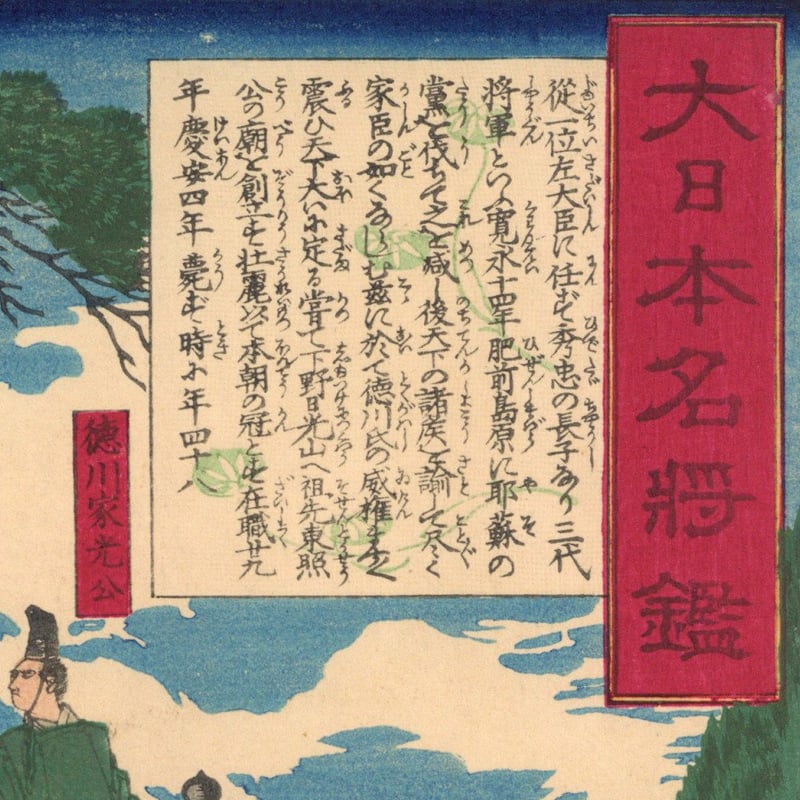 大日本名將鑑
從一位左大臣に任ず秀忠の長子なり三代
將軍といふ寛永十四年肥前島原に耶蘇の
黨を伐ちて之を滅し後天下の諸侯を諭して尽く
家臣の如くならしむ茲に於て徳川氏の威權ますく
震ひ天下大いに定る嘗て下野日光山へ祖先東照
公の廟を創立す壮麗以て本朝の冠とす在職廿九
年慶安四年薨ず時に年四十八
徳川家光公